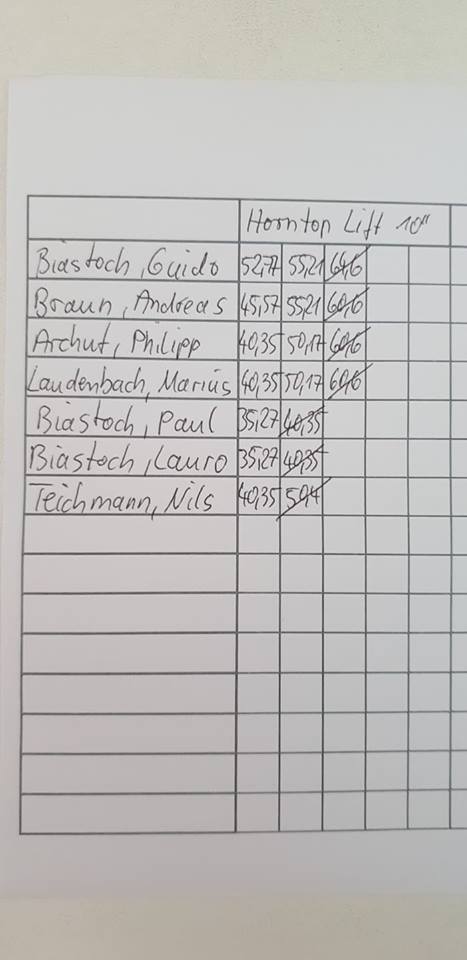 Horntop Lift 10"
Biastoch, Guido 52,77 55,21 60,6
Braun, Andreas 45,57 55,21 60,6
Archut, Philipp 40,35 50,17 60,6
Laudenbach, Marius 40,35 50,17 60,6
Biastoch, Paul 35,27 40,35
Biastoch, Lauro 35,27 40,35
Teichmann, Nils 40,35